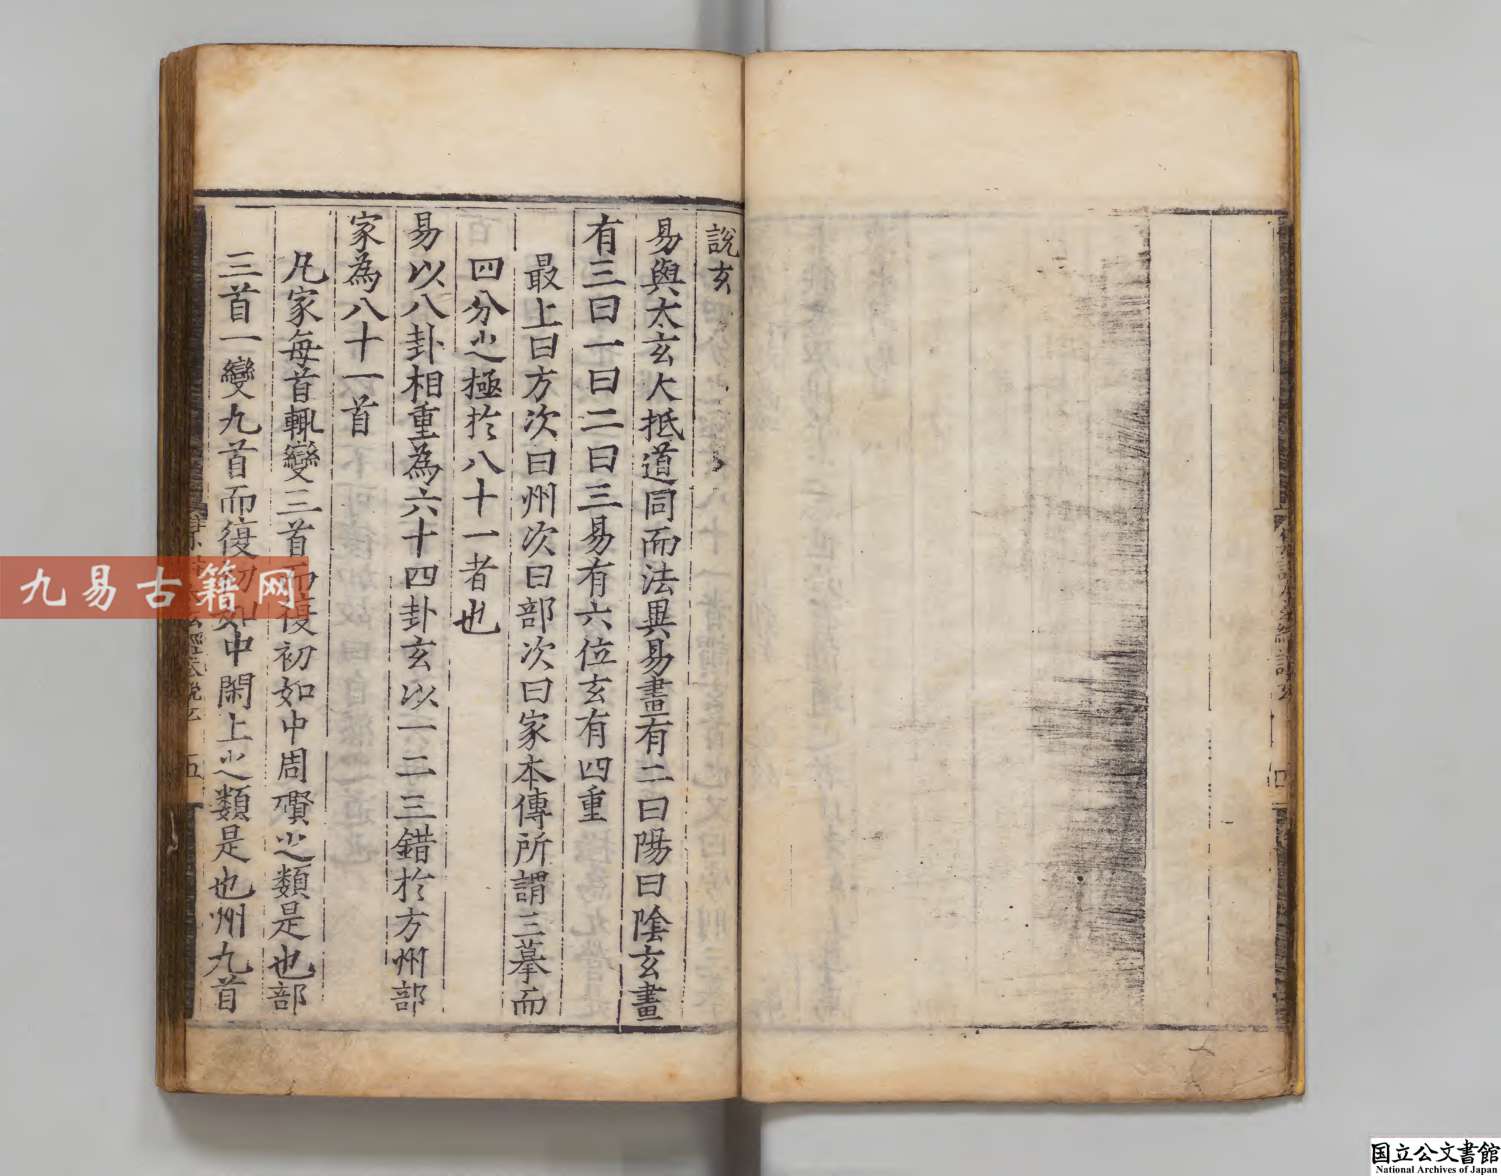 說玄
易與太玄大抵道同而法異易畫有二曰陽曰陰玄畫
有三曰一曰二曰三易有六位玄有四重
最上曰方次曰州次曰部次曰家本傳所謂三摹而
四分之極於八十一者也
易以八卦相重為六十四卦玄以一二三錯於方州部
家為八十一首
凡家每首輒變三首而復初如中周礥之類是也部
三首一變九首而復初如中閑上之類是也州九首
五
四
九易古籍网
国立公文書館
National Archives of Japan